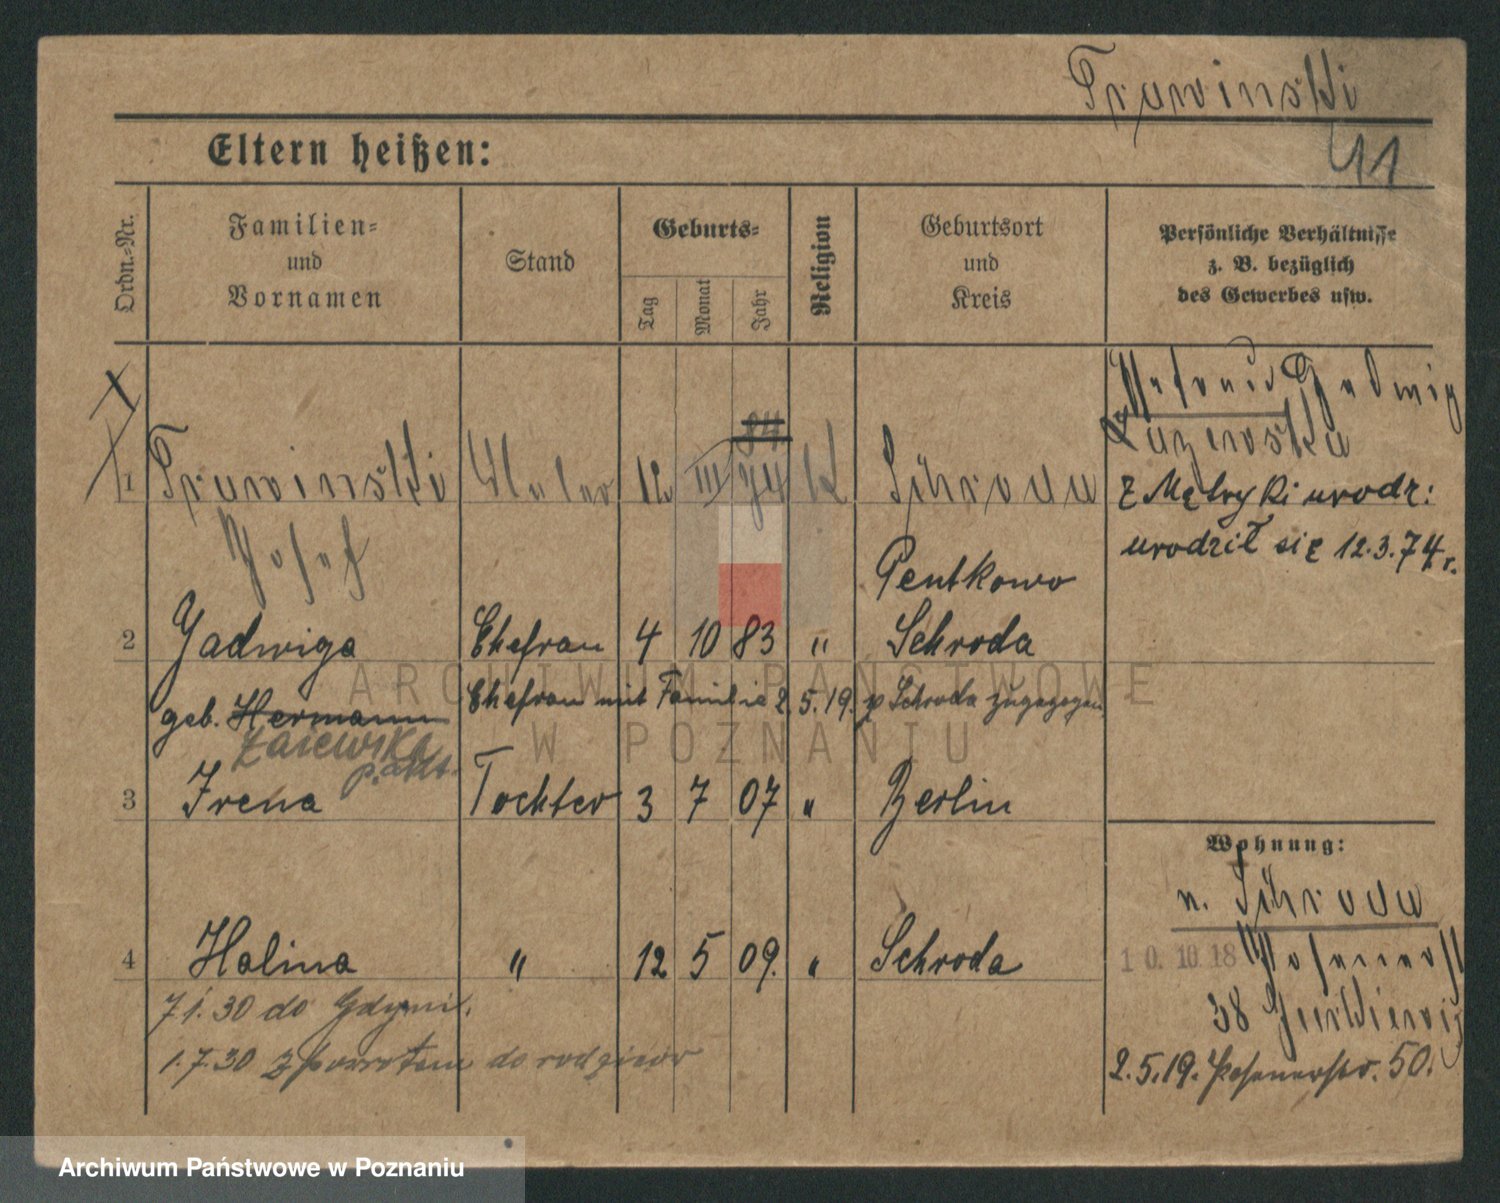 Trawinski
11
Eltern heißen:
Ordn.-Nr.
Familien-
und
Vornamen
Stand
Geburts-
Tag
Monat
Jahr
Religion
Geburtsort
und
Kreis
Persönliche Verhältnisse
z. B. bezüglich
des Gewerbes usw.
84
1 Trawinski Maler 12 III 74 K Schroda
Josef
Ehefrau Hedwig
z Metryki urodz:
urodził się 12.3.74 r.
Pentkowo
2 Jadwiga Ehefrau 4 10 83 " Schroda
geb. Hermann
Ehefrau mit Familie 2.5.19. v Schroda zugezogen
p. akt.
3 Irena Tochter 3 7 07 " Berlin
Wohnung:
n. Schroda
4 Halina " 12 5 09. " Schroda
10.10.18 Posenerstr
38
7 1. 30 do Gdyni.
1.7.30 z powrotem do rodziców
2.5.19. Posenerstr. 50.
ARCHIWUM PAŃSTWOWE
W POZNANIU
Archiwum Państwowe w Poznaniu